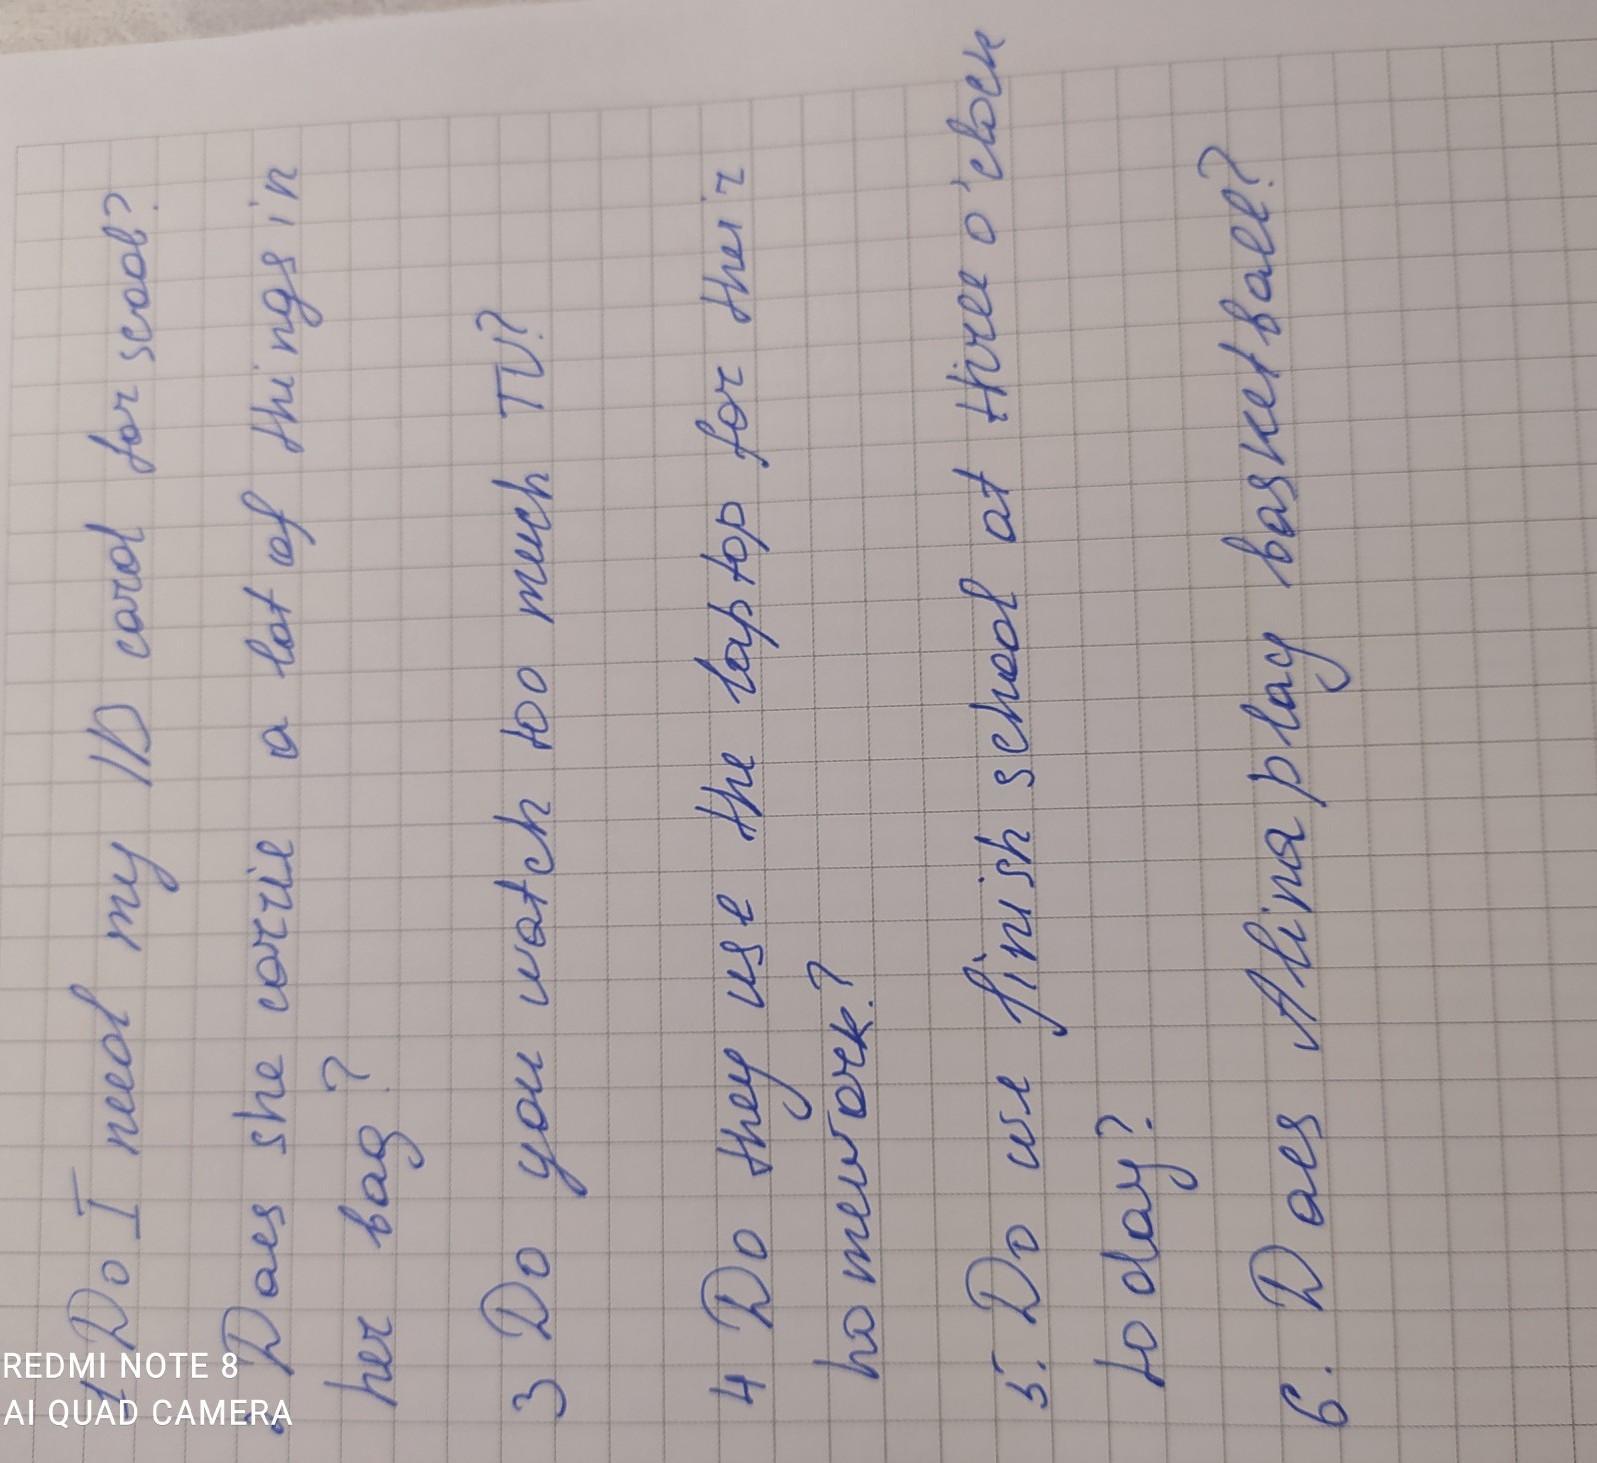 1 Do I need my ID card for scool?
2 Does she carrie a lot of things in
her bag?
3 Do you watch too much TV?
4 Do they use the laptop for their
homework?
5. Do we finish school at three o'clock
today?
6. Does Alina play basketball?
REDMI NOTE 8
AI QUAD CAMERA